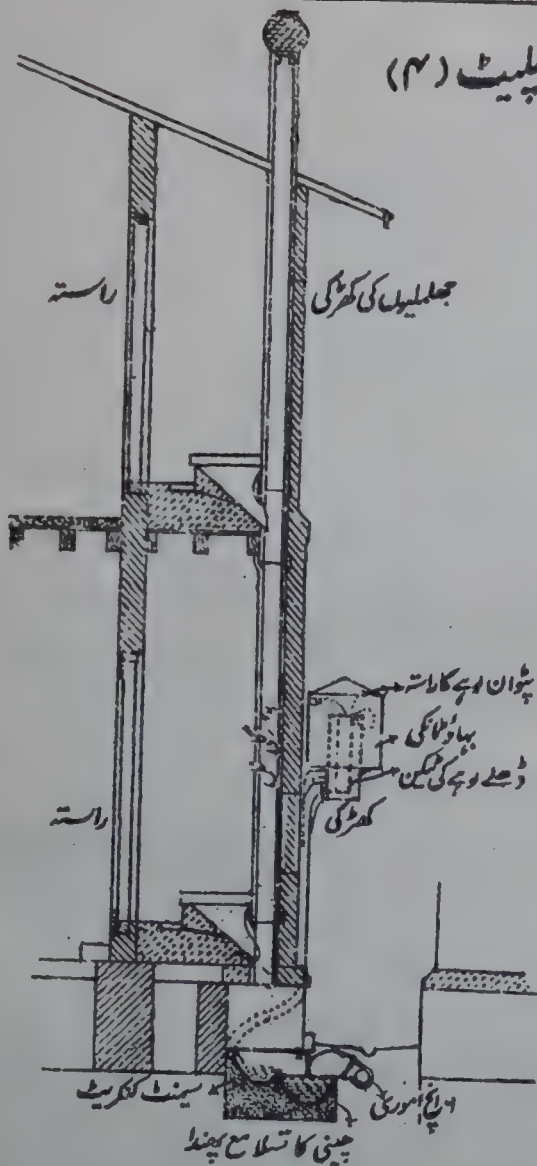 پلیٹ (۴)
راستہ
جھلملیوں کی کھڑکی
پٹوان لوہے کا راستہ
بہاؤ ٹانکی
ڈھلے لوہے کی ٹیکن
کھڑکی
راستہ
سیمنٹ کنکریٹ
انچ موری
چینی کا تسلا مع پھندا